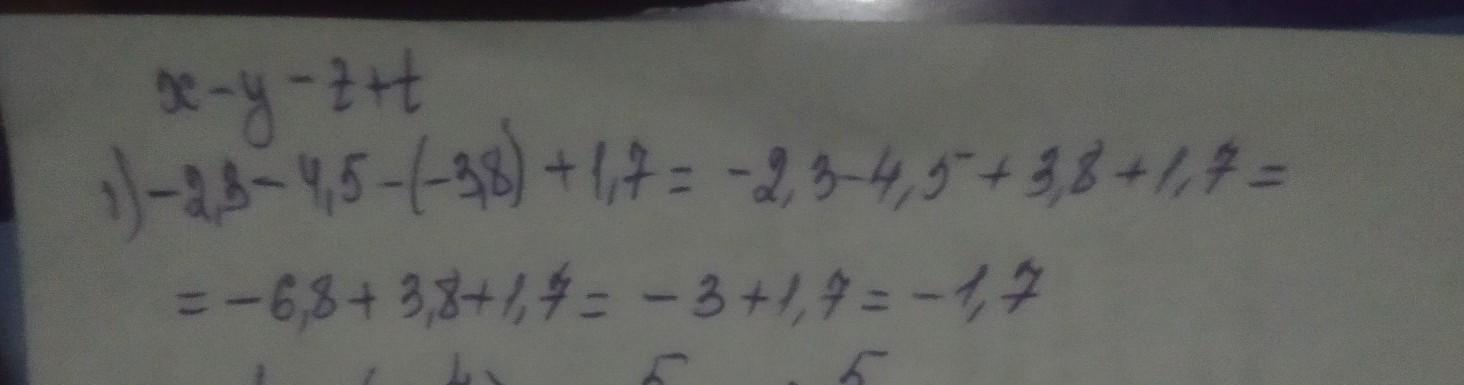 x-y-z+t
1) -2,3-4,5-(-3,8)+1,7= -2,3-4,5+3,8+1,7=
= -6,8+3,8+1,7= -3+1,7= -1,7